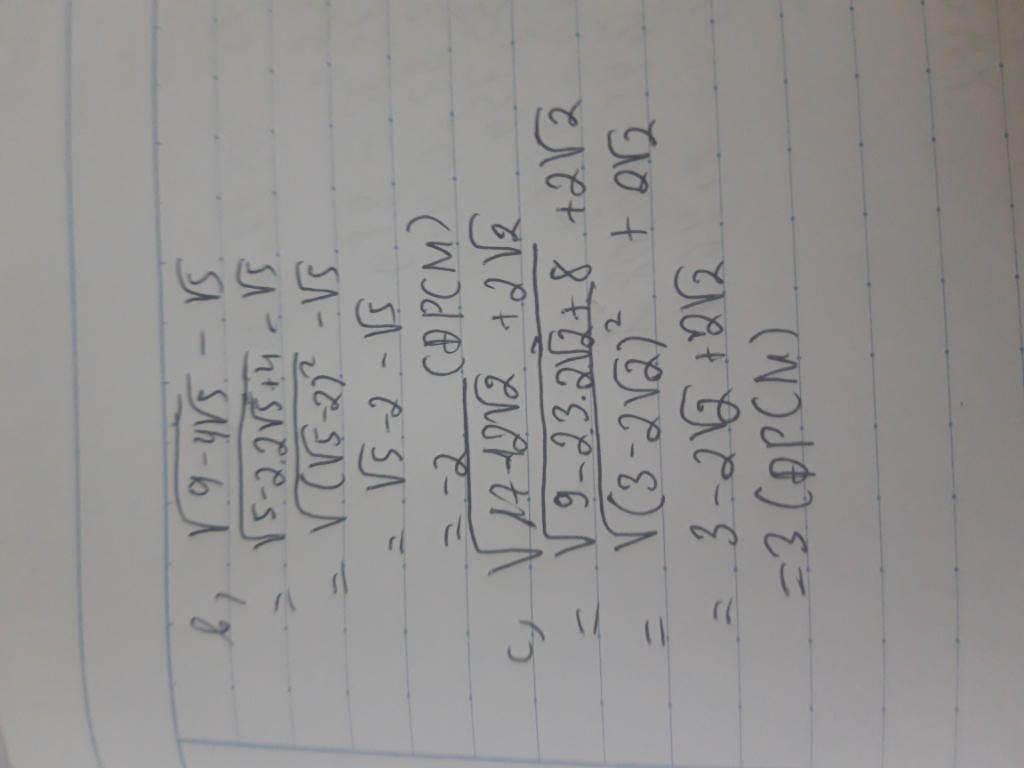 b, √(9-4√5) - √5
= √(5-2.2√5+4) - √5
= √((√5-2)²) - √5
= √5-2 - √5
= -2 (ĐPCM)
c, √(17-12√2) + 2√2
= √(9-23.2√2+8) + 2√2
= √((3-2√2)²) + 2√2
= 3-2√2+2√2
= 3 (ĐPCM)